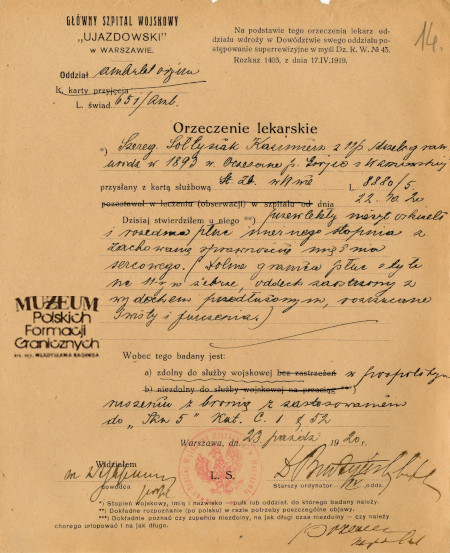 GŁÓWNY SZPITAL WOJSKOWY
„UJAZDOWSKI"
w WARSZAWIE.
Oddział
K. karty przyjęcia
L. świad. 651/Amb.
Na podstawie tego orzeczenia lekarz od-
działu wdroży w Dowództwie swego oddziału po-
stępowanie superrewizyjne w myśl Dz. R. W. № 43.
Rozkaz 1405, z dnia 17.IV.1919.
14.
Orzeczenie lekarskie
*) Szereg. Sołtysiak Kazimierz z
urodz w 1893 w p. Grójec z Warszawskiej
przysłany z kartą służbową L. 8880/5.
pozostował w leczeniu (obserwacji) w szpitalu od dnia 22.10.20
Dzisiaj stwierdziłem u niego **) przewlekły nieżyt oskrzeli
i rozedma płuc miernego stopnia z
zachowaną sprawnością mięśnia
sercowego. (Dolne granice płuc z tyłu
na 11-ym żebrze, oddech zaostrzony z
wydechem przedłużonym, rozsiane
świsty i furczenia.)
MUZEUM
Polskich
Formacji
Granicznych
im. mjr. WŁADYSŁAWA RAGINISA
Wobec tego badany jest:
a) zdolny do służby wojskowej bez zastrzeżeń w pospolitym
b) niezdolny do służby wojskowej na przeciąg ***)
ruszeniu z bronią z zastosowaniem
do „Pkn 5" Kat. C. 1 § 52
Warszawa, dn. 23 paźdz 1920.
Widziałem
L. S.
Dowódca
Starszy ordynator oddz.
*) Stopień wojskowy, imię i nazwisko —pułk lub oddział, do którego badany należy.
**) Dokładne rozpoznanie (po polsku) w razie potrzeby poszczególne objawy.
***) Dokładnie poznać czy zupełnie niezdolny, na jak długi czas niezdolny — czy należy
chorego urlopować i na jak długo.